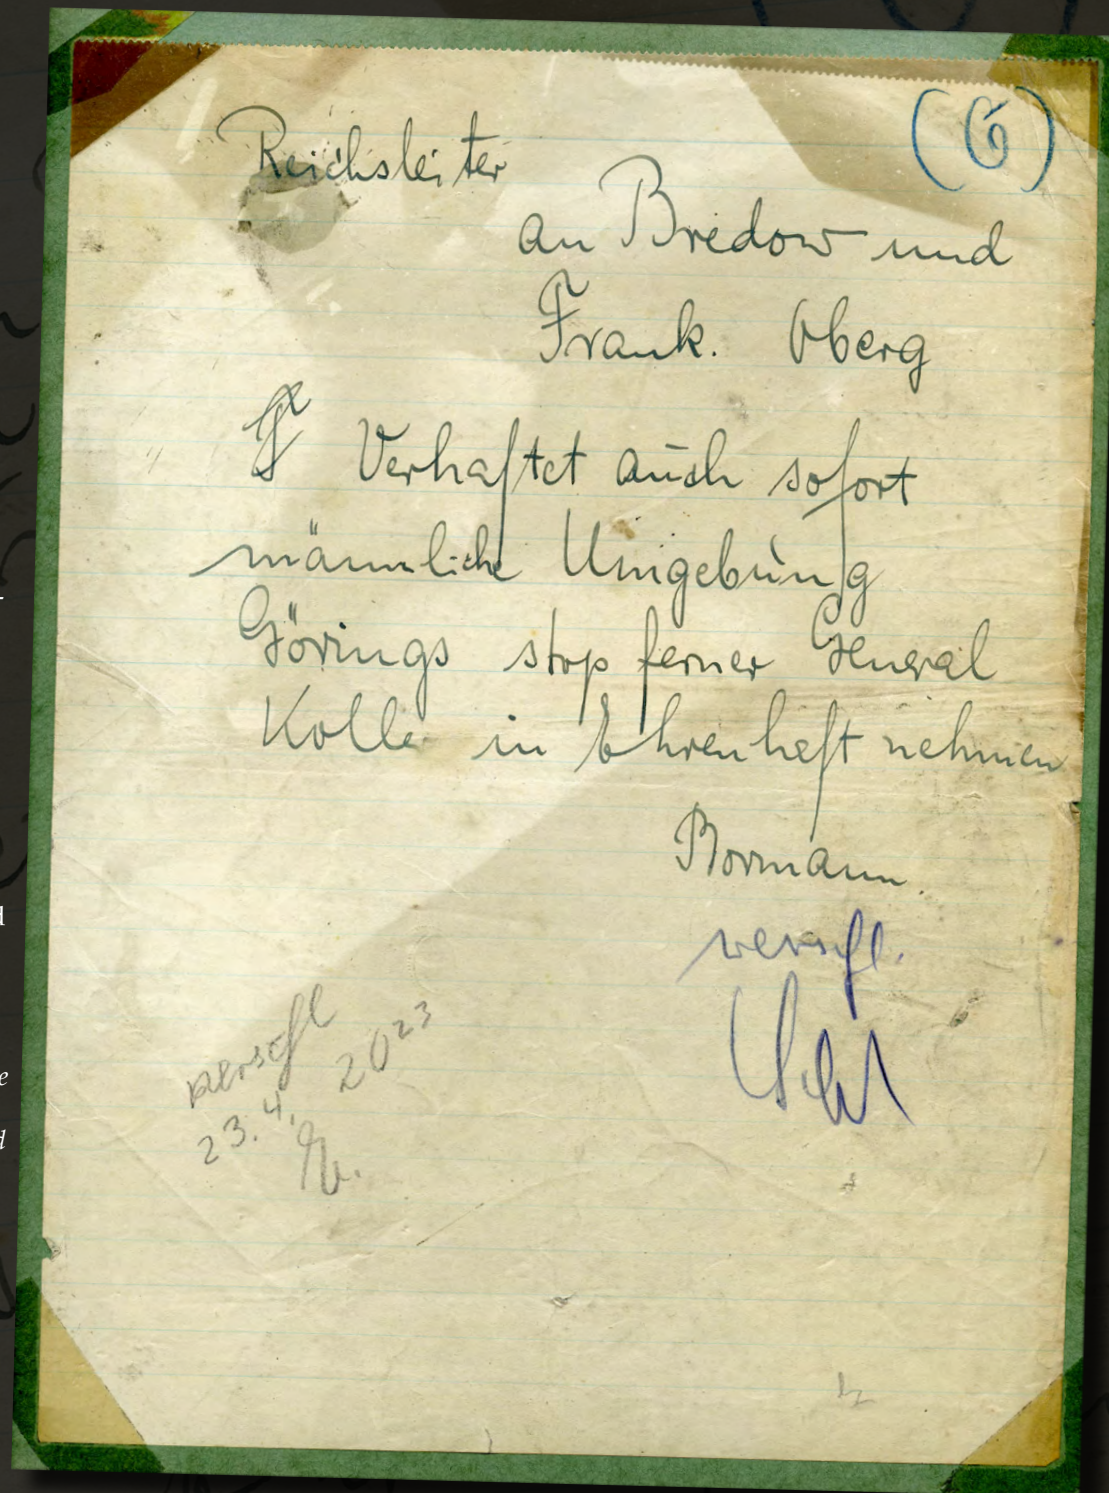 (6)
Reichsleiter
an Bredow und
Frank. Oberg
Verhaftet auch sofort
männliche Umgebung
Görings stop ferner General
Kolle in Ehrenheft nehmen
Bormann.
verschl.
verschl
23.4. 20²³